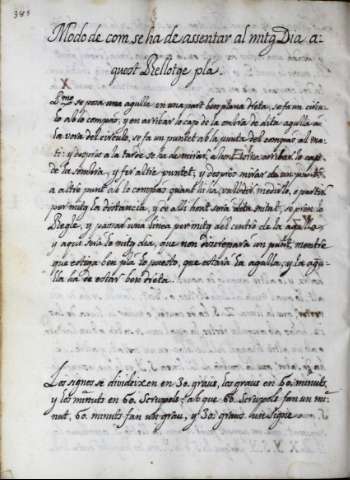 Modo de com se ha de assentar al mitg Dia a-
quest Rellotge pla.
X
se posa una agulla en una part ben plana dreta, se fa un circu-
lo ab lo compas, y en arribar lo cap de la ombra de dita agulla a
la vora del circulo, se fa un puntet ab la punta del compas al ma-
ti: y despres a la tarde se ha de mirar, ahont torna arribar lo cap
de la sombra, y fer altre puntet, y despres mirar de un puntet
a altre punt ab lo compas quant hi ha, y
per mitg la distancia, y de alli hont sera dita mitat, se pren lo
Regle, y passar una linea per mitg del centro de la agulla
y aqui sera lo mitg dia, que non discrepara un punt, mentre
que estiga ben pla lo puesto, que estara la agulla, y la agu-
lla ha de estar ben dreta.
Los signes se divideixen en 30. graus, los graus en 60. minuts,
y los minuts en 60. Scrupols: ab que 60. Scrupols fan un mi-
nut, 60. minuts fan un grau, y 30. graus un signe